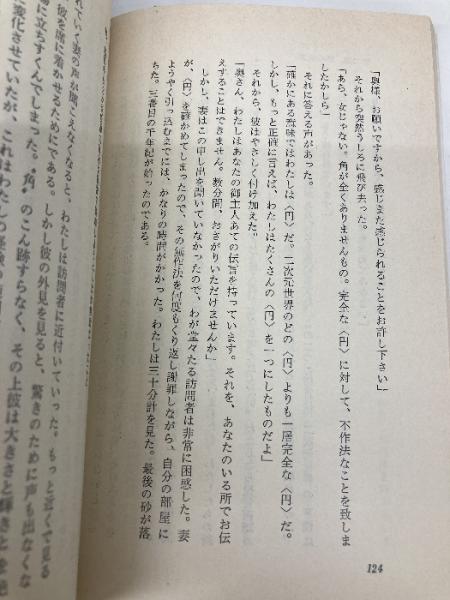 「奥様、お願いですから、感じまた感じられることをお許し下さい」
それから突然うしろに飛び去った。
「あら、女じゃない。角が全くありませんもの。完全な〈円〉に対して、不作法なことを致しま
したかしら」
それに答える声があった。
「確かにある意味ではわたしは〈円〉だ。二次元世界のどの〈円〉よりも一層完全な〈円〉だ。
しかし、もっと正確に言えば、わたしはたくさんの〈円〉を一つにしたものだよ」
それから、彼はやさしく付け加えた。
「奥さん、わたしはあなたの御主人あての伝言を持っています。それを、あなたのいる所でお伝
えすることはできません。数分間、おさがりいただけませんか」
しかし、妻はこの申し出を聞いていなかったので、わが堂々たる訪問者は非常に困惑した。妻
が、〈円〉を確かめてしまったので、その無作法を何度もくり返し謝罪しながら、自分の部屋に
ようやく引っ込むまでには、かなりの時間がかかった。わたしは三十分計を見た。最後の砂が落
ちた。三番目の千年紀が始ったのである。
124
れていく妻の声が聞こえなくなると、わたしは訪問者に近付いていった。もっと近くで見る
彼を席に着かせるためにである。しかし彼の外見を見ると、驚きのために声も出なくな
場に立ちすくんでしまった。"角"のこん跡すらなく、その上彼は大きさと輝きとを絶
変化させていたが、これはわたしの経験